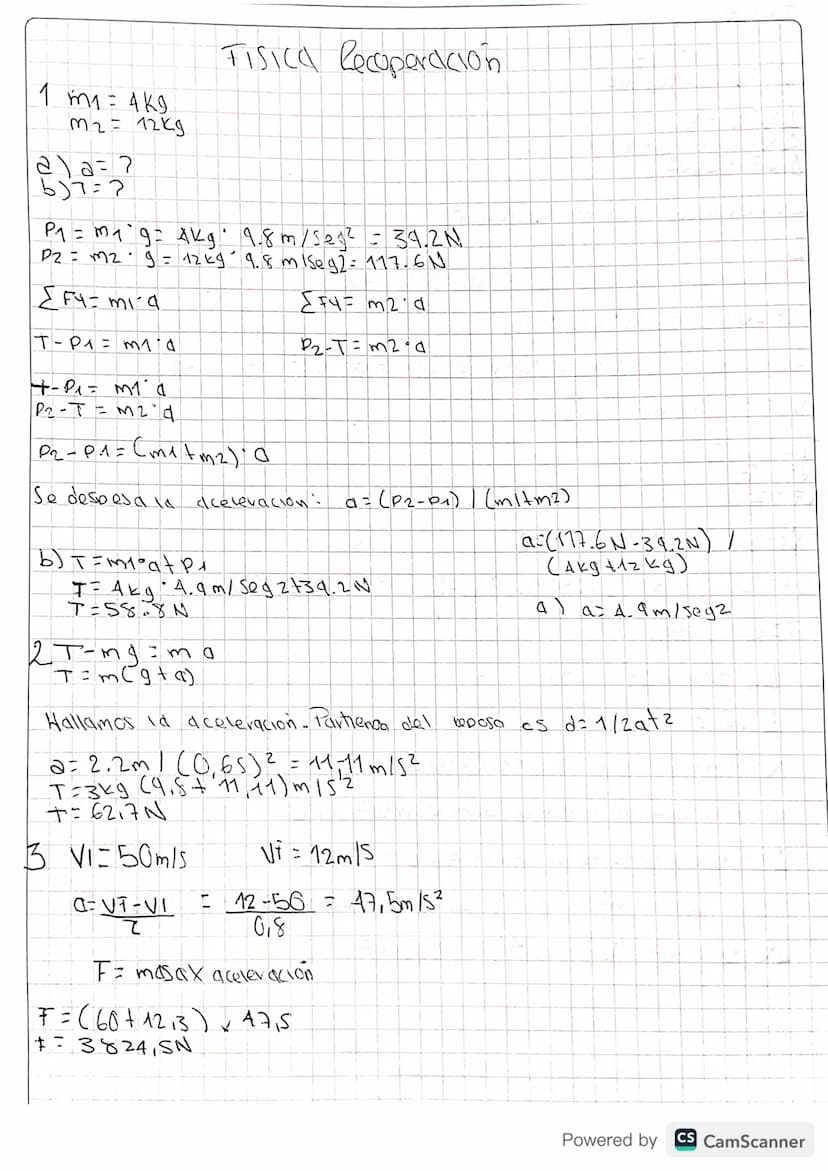 FISICA Recoperación
1 m1 = 4Kg
m2 = 12Kg
a) a= ?
b) T= ?
P1 = m1 · g= 4kg · 9.8m/Seg² = 39.2N
P2 = m2 · g = 12kg · 9.8 m/Seg2= 117.6N
ΣFy= m1·a ΣFy= m2·a
T-P1= m1·a P2-T= m2·a
T-P1= m1·a
P2-T = m2·a
P2-P1=(m1+m2)·a
Se despesa la aceleración: a=(P2-P1) / (m1+m2)
a=(117.6N-39.2N) /
(4kg+12kg)
b) T=m1·a+P1
T= 4kg·4.9m/Seg2+39.2N
T=58.8N
a) a= 4.9m/seg2
2 T-mg = m a
T = m(g+a)
Hallamos la aceleracion. Partiendo del es d= 1/2at2
a= 2.2m / (0,6s)² = 11,11m/s²
T=3kg (9,8+ 11,11)m/s²
T= 62,7N
3 VI=50m/s Vf = 12m/s
a= Vf-VI = 12-50 = 47,5m/s²
T 0,8
F= masa x aceleración
F=(60+12,3) x 47,5
F= 3824,5N
Powered by CS CamScanner